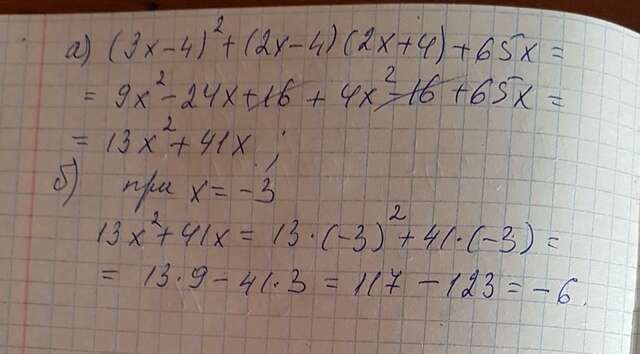 а) (3x-4)² + (2x-4)(2x+4) + 65x =
= 9x² - 24x + 16 + 4x² - 16 + 65x =
= 13x² + 41x ;
б) при x = -3
13x² + 41x = 13·(-3)² + 41·(-3) =
= 13·9 - 41·3 = 117 - 123 = -6.